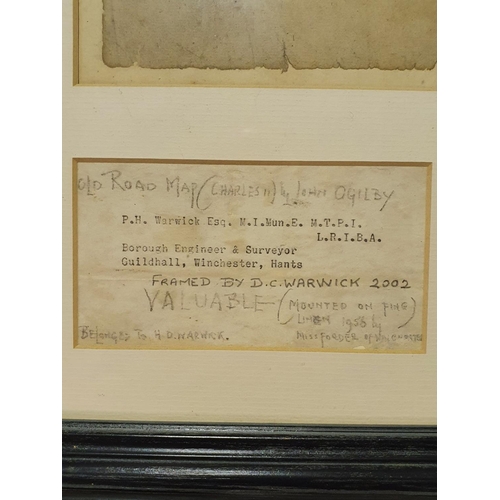 OLD ROAD MAP (CHARLES II) by JOHN OGILBY
P.H. Warwick Esq. M.I.Mun.E. M.T.P.I.
L.R.I.B.A.
Borough Engineer & Surveyor
Guildhall, Winchester, Hants
FRAMED BY D.C. WARWICK 2002
VALUABLE (MOUNTED ON FINE
LINEN 1956 by
MISS FORDER OF WINCHESTER)
BELONGS TO D. WARWICK.